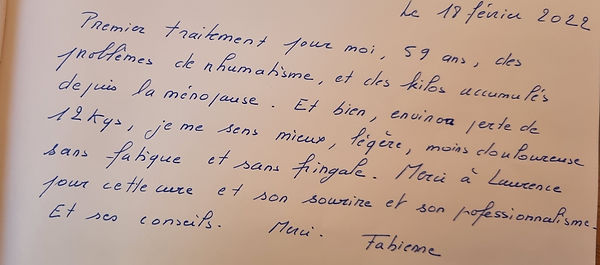 Le 18 février 2022
Premier traitement pour moi, 59 ans, des
problèmes de rhumatisme, et des kilos accumulés
depuis la ménopause. Et bien, environ perte de
12 Kgs, je me sens mieux, légère, moins douloureuse
sans fatigue et sans fringale. Merci à Laurence
pour cette cure et son sourire et son pofessionnalisme.
Et ses conseils. Merci. Fabienne